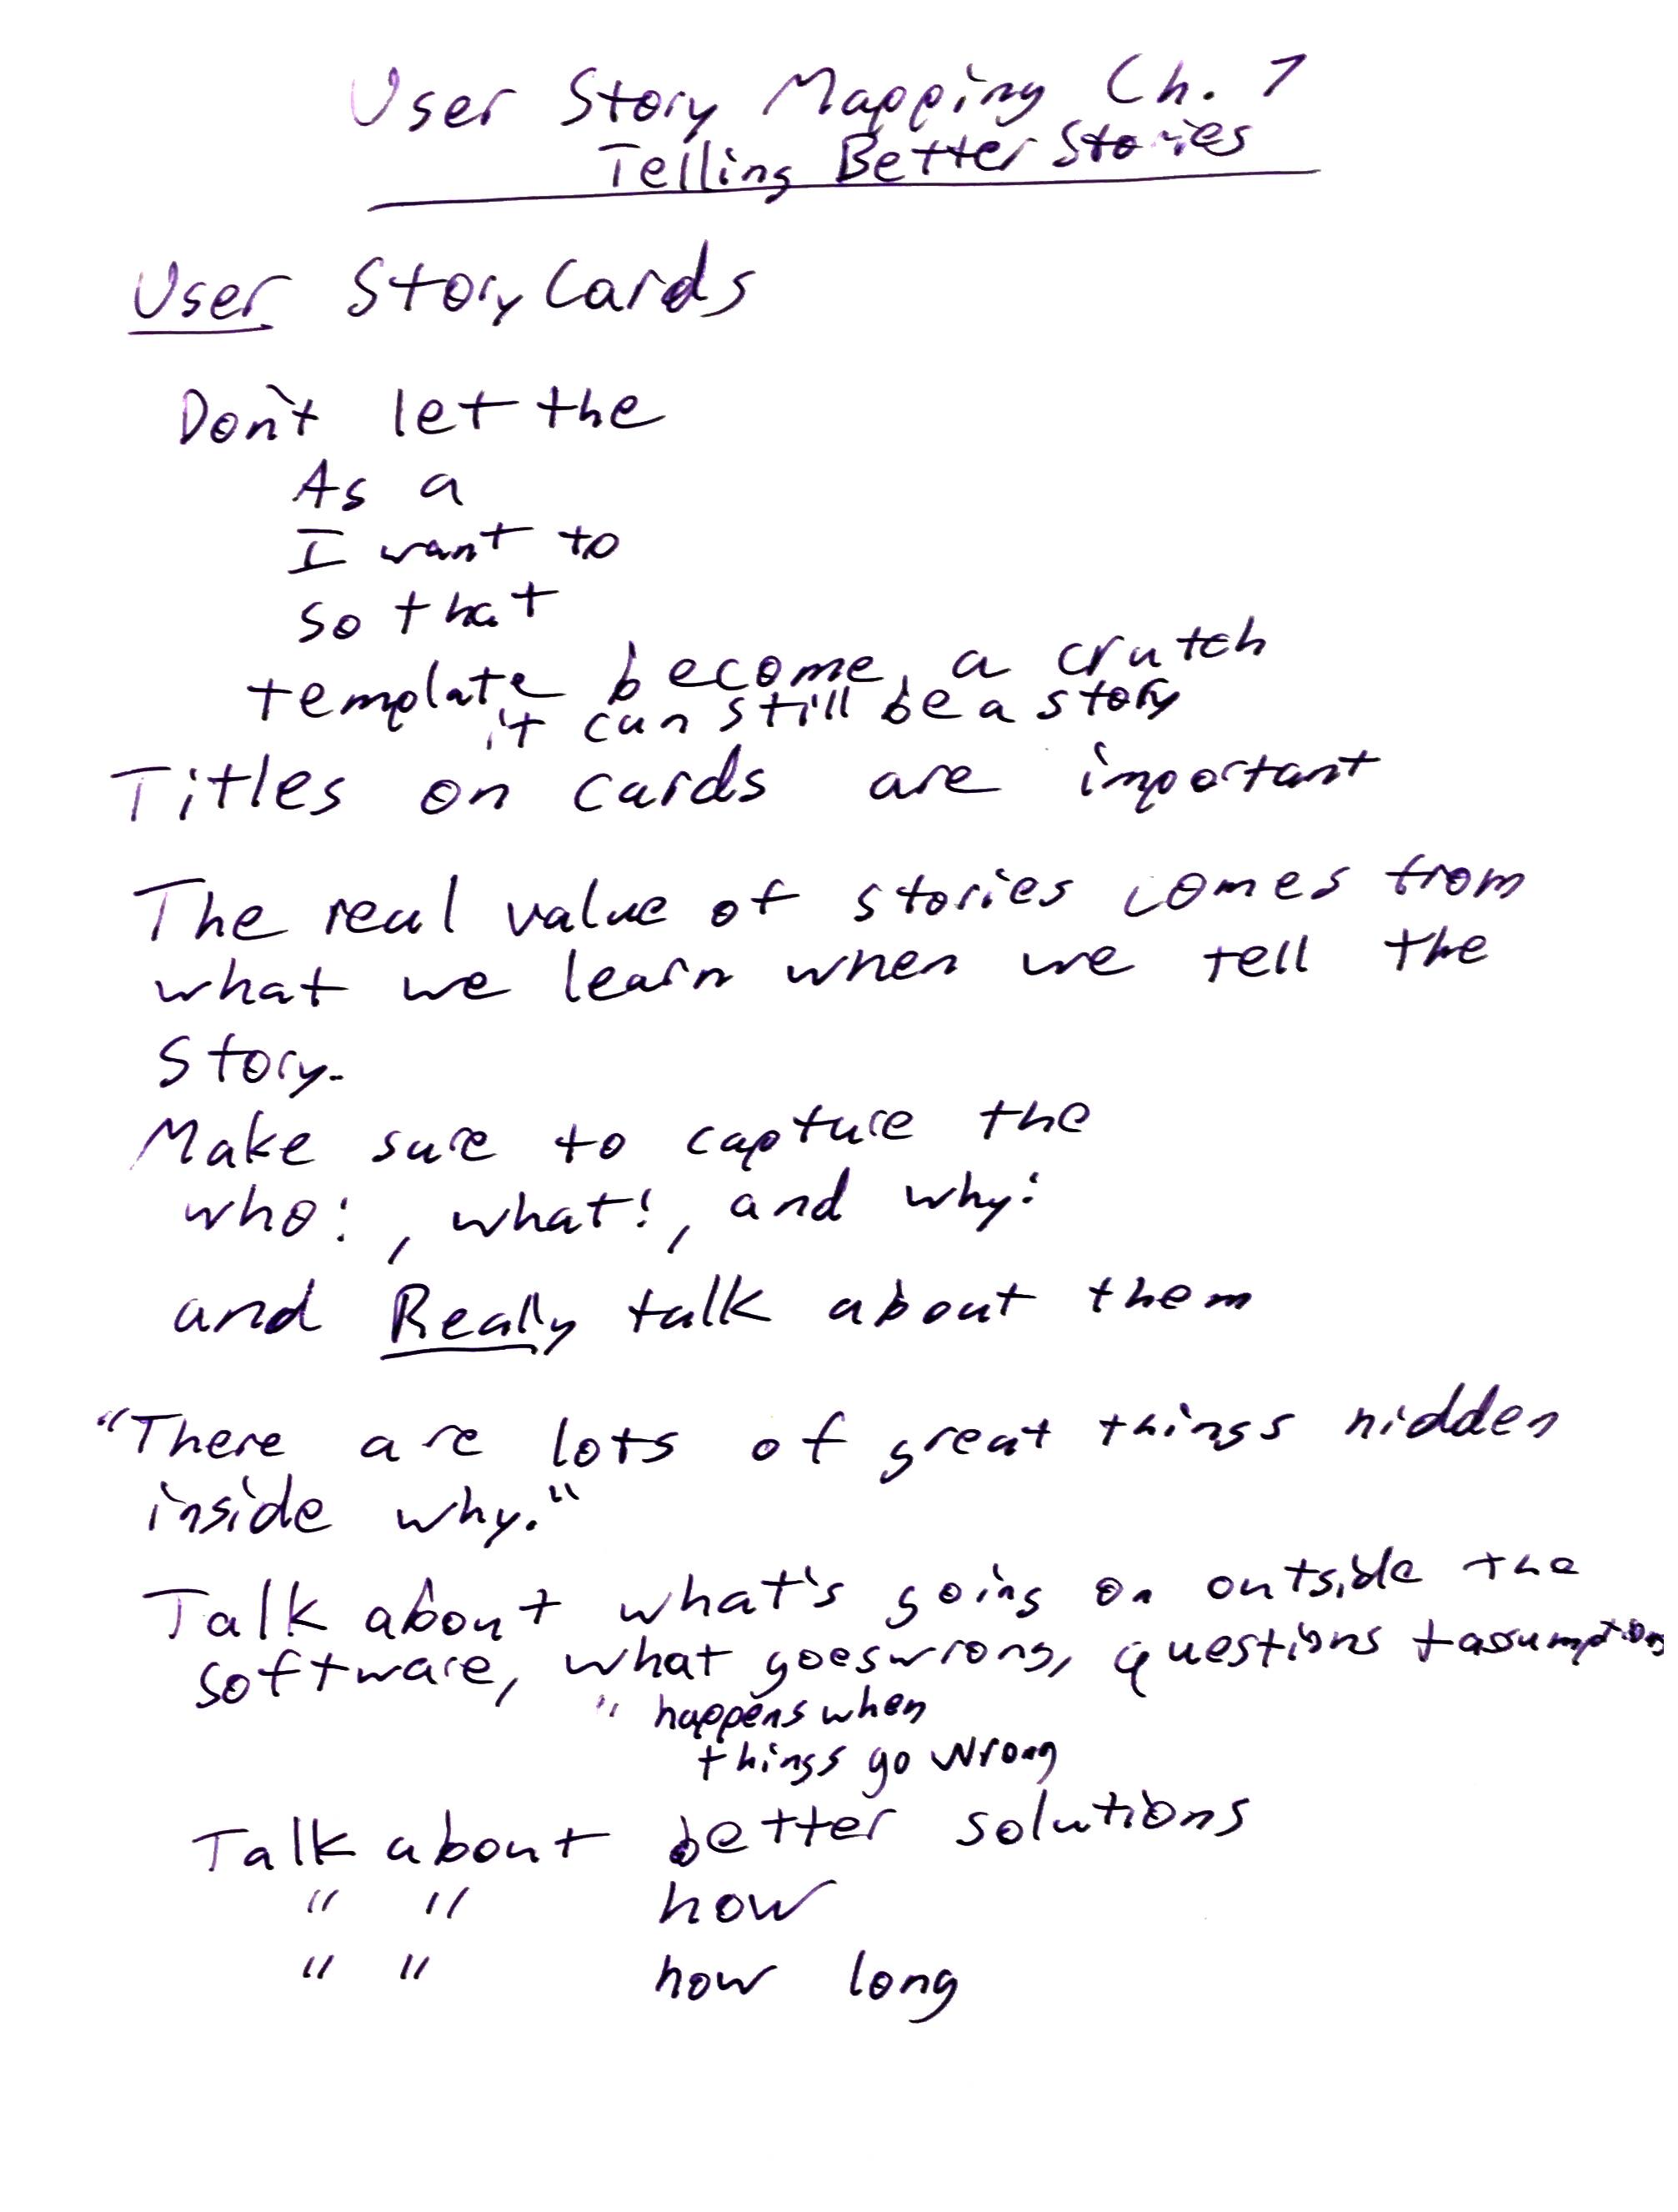 User Story Mapping Ch. 7
Telling Better Stories
User Story Cards
Don't let the
As a
I want to
so that
template become a crutch
it can still be a story
Titles on cards are important
The real value of stories comes from
what we learn when we tell the
Story.
Make sure to capture the
who:, what:, and why:
and Really talk about them
"There are lots of great things hidden
inside why."
Talk about what's going on outside the
software, what goes wrong, questions + assumptions
" happens when
things go wrong
Talk about better solutions
" " how
" " how long